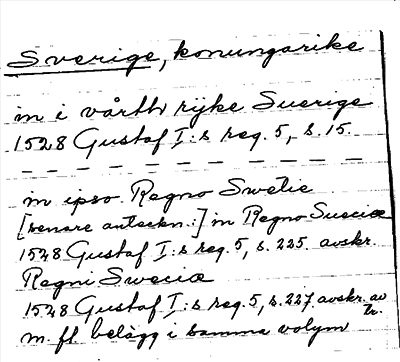 Sverige, konungarike
in i vårth rijke Suerige
1528 Gustaf I:s reg. 5, s. 15.
in ipso Regno Swetie
[senare anteckn.:] in Regno Sueciæ
1528 Gustaf I:s reg. 5, s. 225. avskr.
Regni Sweciæ
1528 Gustaf I:s reg. 5, s. 227, avskr. av
tr.
m. fl. belägg i samma volym